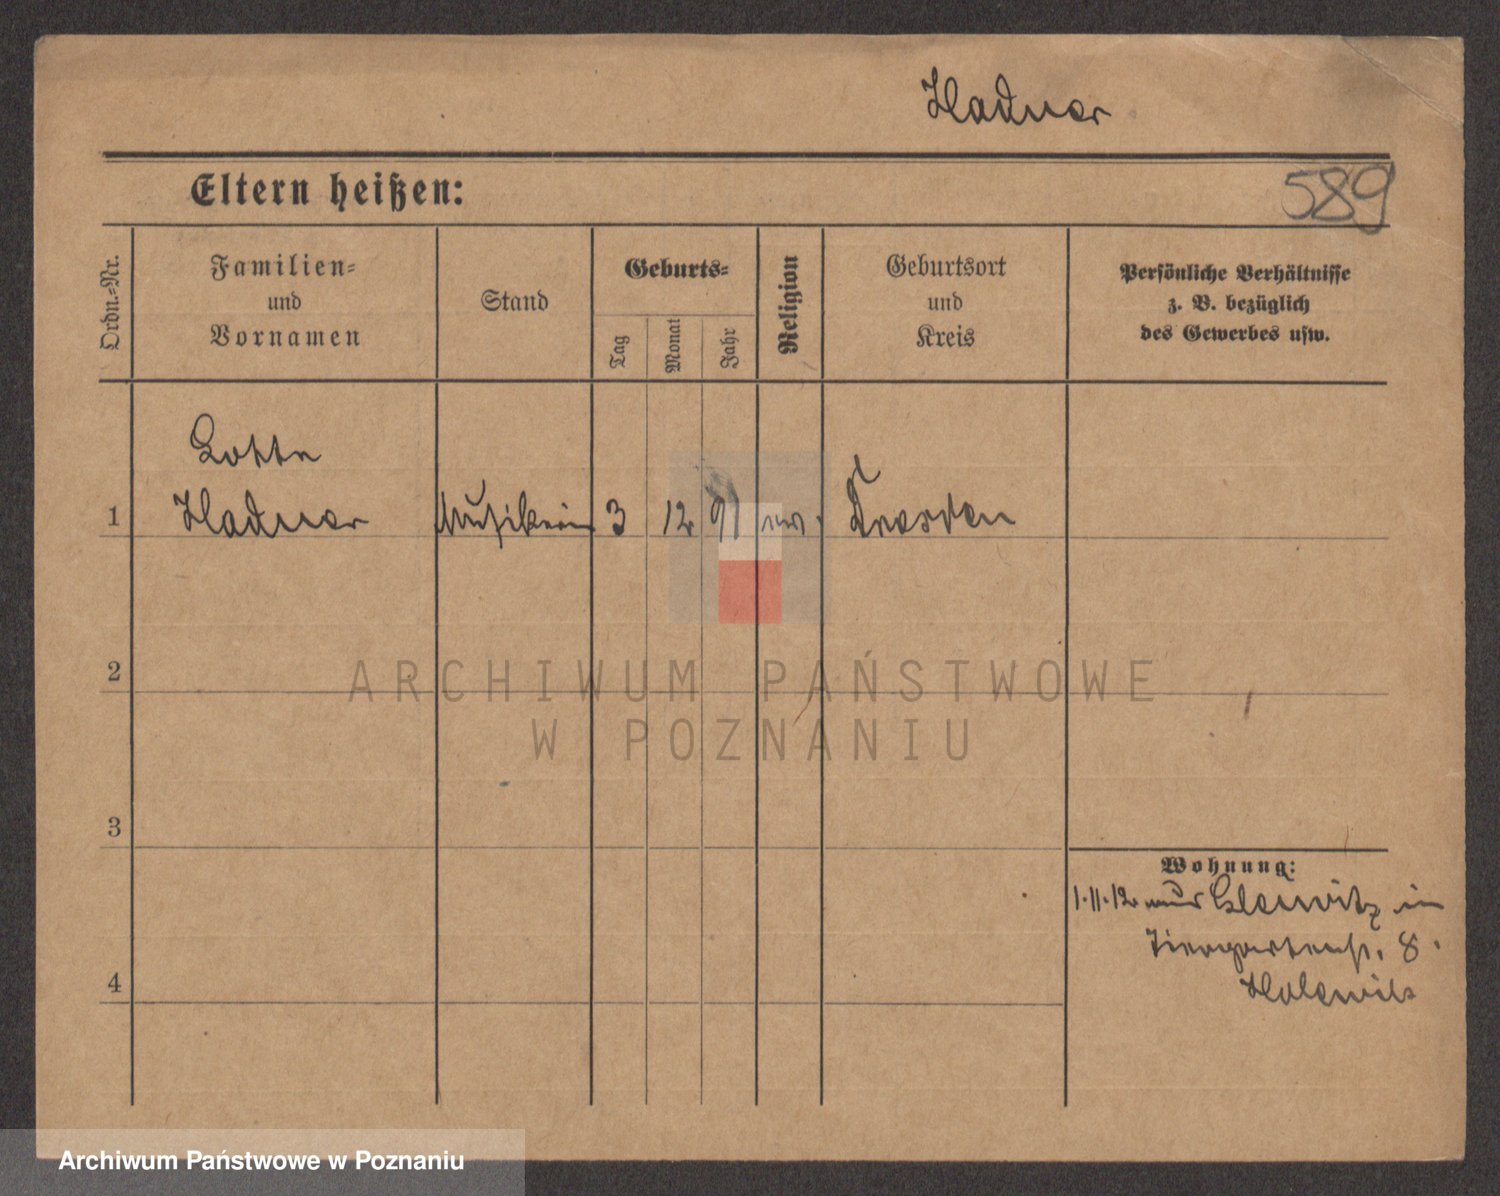 Hadner
Eltern heißen:
589
Ordn.=Nr.
Familien=
und
Vornamen
Stand
Geburts=
Tag
Monat
Jahr
Religion
Geburtsort
und
Kreis
Persönliche Verhältnisse
z. B. bezüglich
des Gewerbes usw.
Lotte
1 Hadner Musikerin 3 12 91 Dresden
2
ARCHIWUM PAŃSTWOWE
W POZNANIU
3
Wohnung:
1.11.12 in
Tiergartenstr. 8.
4
Archiwum Państwowe w Poznaniu